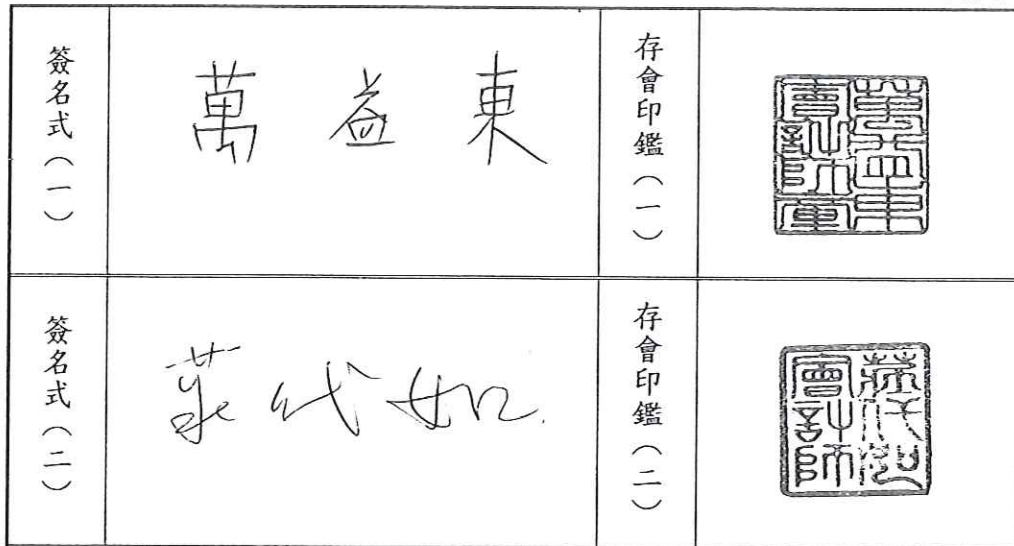 簽名式（一）
萬益東
存會印鑑（一）
萬益東
會計師章
簽名式（二）
莊代如
存會印鑑（二）
莊代如
會計師